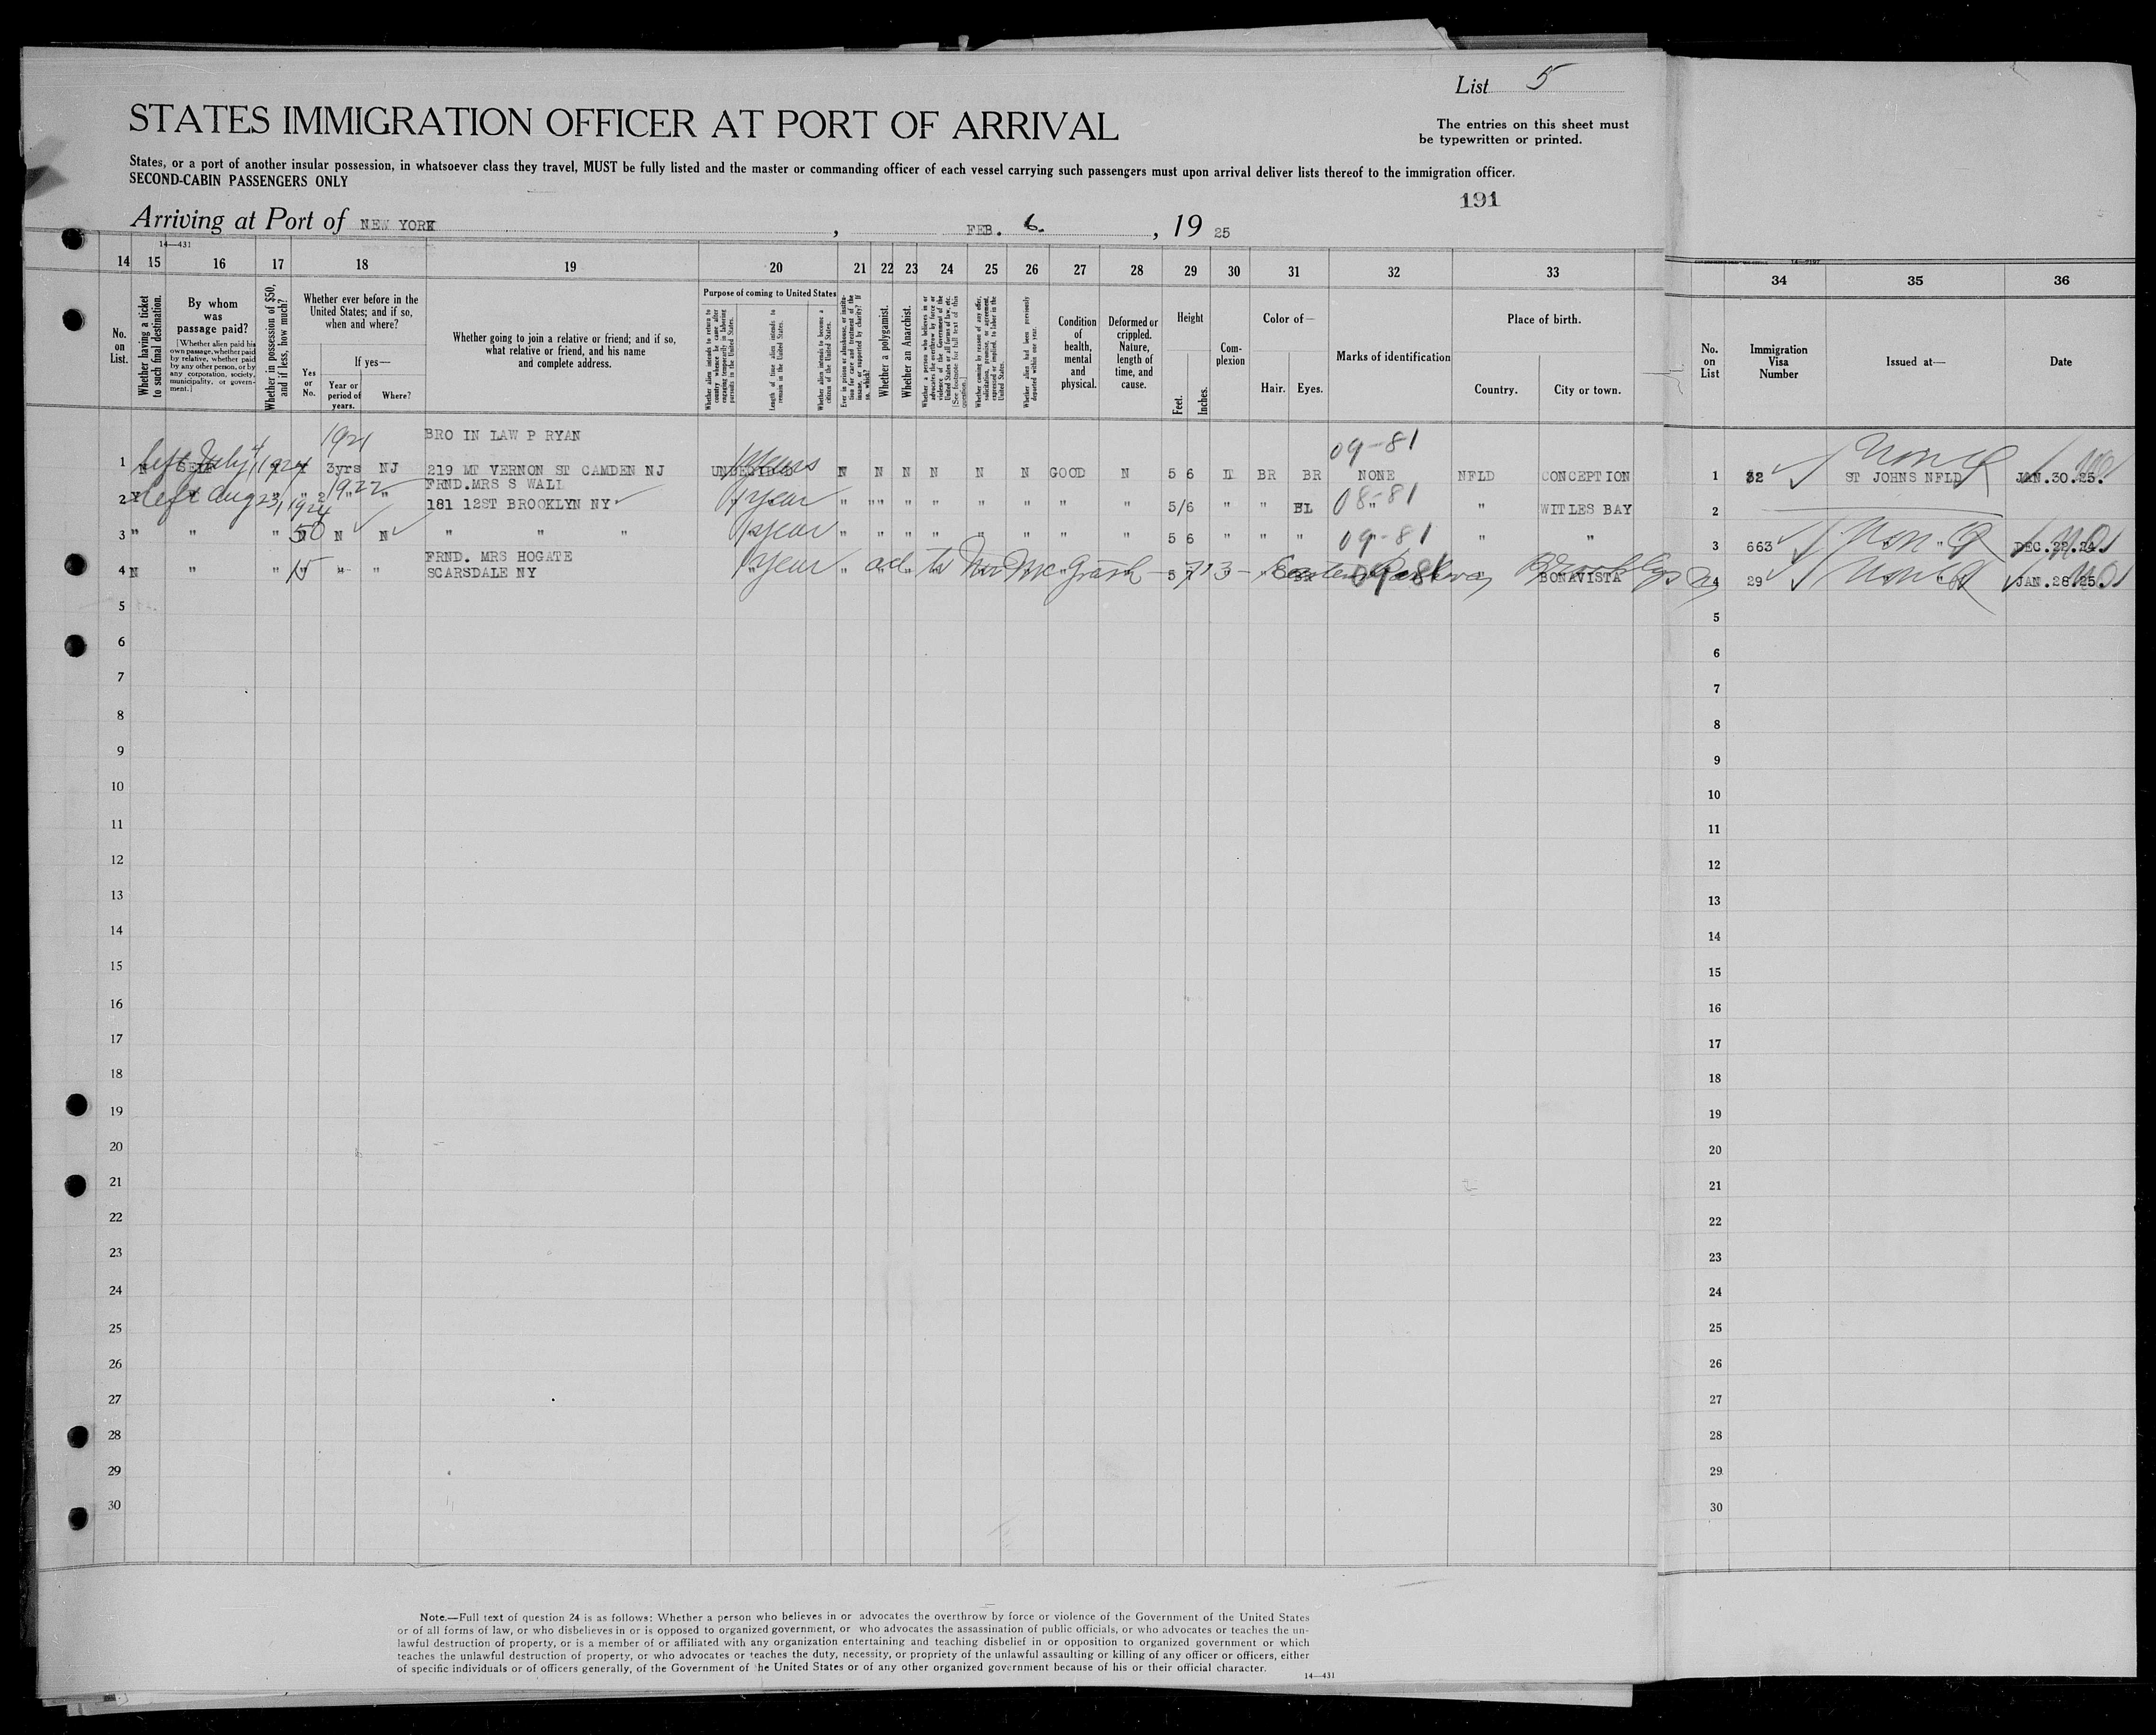 List 5
STATES IMMIGRATION OFFICER AT PORT OF ARRIVAL
The entries on this sheet must
be typewritten or printed.
States, or a port of another insular possession, in whatsoever class they travel, MUST be fully listed and the master or commanding officer of each vessel carrying such passengers must upon arrival deliver lists thereof to the immigration officer.
SECOND-CABIN PASSENGERS ONLY
191
Arriving at Port of NEW YORK, FEB. 6., 19 25
14—431
14 15 16 17 18 19 20 21 22 23 24 25 26 27 28 29 30 31 32 33 34 35 36
No. on List.
Whether having a ticket to such final destination.
By whom was passage paid?
[Whether alien paid his own passage, whether paid by relative, whether paid by any other person, or by any corporation, society, municipality, or government.]
Whether in possession of $50, and if less, how much?
Whether ever before in the United States; and if so, when and where?
Yes or No.
If yes—
Year or period of years.
Where?
Whether going to join a relative or friend; and if so, what relative or friend, and his name and complete address.
Purpose of coming to United States
Whether alien intends to return to country whence he came after engaging temporarily in laboring pursuits in the United States.
Length of time alien intends to remain in the United States.
Whether alien intends to become a citizen of the United States.
Ever in prison or almshouse, or institution for care and treatment of the insane, or supported by charity? If so, which?
Whether a polygamist.
Whether an Anarchist.
Whether a person who believes in or advocates the overthrow by force or violence of the Government of the United States or all forms of law, etc. [See footnote for full text of this question.]
Whether coming by reason of any offer, solicitation, promise, or agreement, expressed or implied, to labor in the United States.
Whether alien had been previously deported within one year.
Condition of health, mental and physical.
Deformed or crippled. Nature, length of time, and cause.
Height
Feet. Inches.
Complexion
Color of—
Hair. Eyes.
Marks of identification
Place of birth.
Country. City or town.
No. on List
Immigration Visa Number
Issued at—
Date
1921 BRO IN LAW P RYAN 09-81
1 N SELF left July 1924 3yrs NJ 219 MT VERNON ST CAMDEN NJ years N N N N N N GOOD N 5 6 BR BR NONE NFLD CONCEPTION 1 32 ST JOHNS NFLD JAN.30.25.
left Aug 23, 1924 1922 FRND.MRS S WALL
2 " " 2 " " 181 12ST BROOKLYN NY 1 year " "" " " " " " " 5/6 " " BL 08-81 " WITLES BAY 2
3 " " " 50 N N " " " 1 year " " " " " " " " 5 6 " " " 09-81 " " 3 663 " " DEC.22.24.
FRND. MRS HOGATE
4 N " " 15 " " SCARSDALE NY 1 year ad to Mrs McGrath 5 7 Eastern Parkway Brooklyn 09-81 BONAVISTA 4 29 " JAN.28.25.
5 5
6 6
7 7
8 8
9 9
10 10
11 11
12 12
13 13
14 14
15 15
16 16
17 17
18 18
19 19
20 20
21 21
22 22
23 23
24 24
25 25
26 26
27 27
28 28
29 29
30 30
Note.—Full text of question 24 is as follows: Whether a person who believes in or advocates the overthrow by force or violence of the Government of the United States
or of all forms of law, or who disbelieves in or is opposed to organized government, or who advocates the assassination of public officials, or who advocates or teaches the un-
lawful destruction of property, or is a member of or affiliated with any organization entertaining and teaching disbelief in or opposition to organized government or which
teaches the unlawful destruction of property, or who advocates or teaches the duty, necessity, or propriety of the unlawful assaulting or killing of any officer or officers, either
of specific individuals or of officers generally, of the Government of the United States or of any other organized government because of his or their official character.
14—431